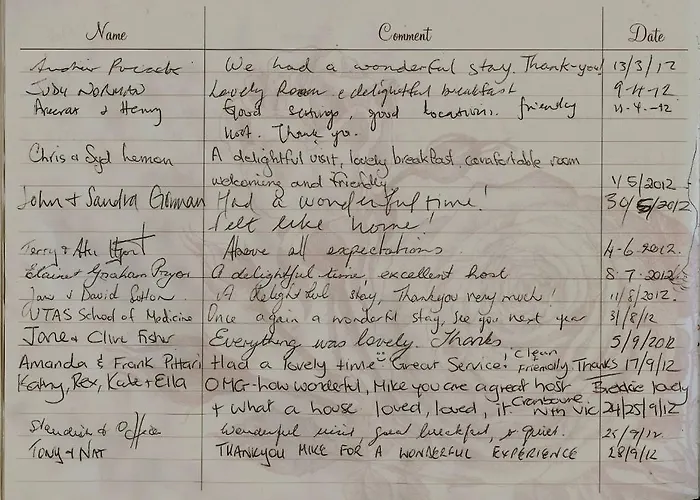 Name Comment Date
We had a wonderful stay. Thank-you! 13/3/12
Judy Norman Lovely Room & delightful breakfast 9-4-12
& Henry Good settings, good locations. friendly 11-4-12
host. Thank you.
Chris & Syd Lemon A delightful visit, lovely breakfast, comfortable room
welcoming and friendly 1/5/2012
John & Sandra Gorman Had a wonderful time! 30/5/2012
Felt like home!
Terry & Above all expectations. 4-6-2012.
Elaine & Graham Pryor A delightful time, excellent host 8.7.2012
Jan & David Sutton. A delightful stay, Thankyou very much! 11/8/2012.
UTAS School of Medicine Once again a wonderful stay, See you next year 31/8/12
Jane & Clive Fisher Everything was lovely. Thanks 5/9/2012
Amanda & Frank Pittari Had a lovely time Great Service! Clean Friendly. Thanks 17/9/12
Kathy, Rex, Kate & Ella OMG-how wonderful, Mike you are a great host lovely
& what a house loved, loved, it. Cranbourne Nth Vic 24/25/9/12
Wonderful visit, good breakfast, & quiet. 25/9/12.
Tony & Nat THANKYOU MIKE FOR A WONDERFUL EXPERIENCE 28/9/12